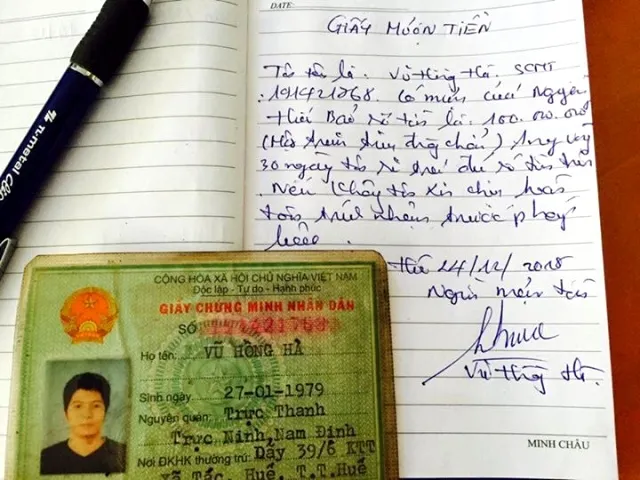 DATE:
GIẤY MƯỢN TIỀN
Tôi tên là. Vũ Hồng Hà. SCMT
191421768. Có mượn của Nguyễn
Thế Bảo số tiền là. 100.000.000
(Một trăm triệu đồng chẵn) Trong vòng
30 ngày tôi sẽ trả đủ số tiền trên
. Nếu không tôi xin chịu hoàn
toàn trách nhiệm trước pháp
luật.
Huế 24/12/2018
Người mượn tiền
Vũ Hồng Hà.
MINH CHÂU
CỘNG HÒA XÃ HỘI CHỦ NGHĨA VIỆT NAM
Độc lập - Tự do - Hạnh phúc
GIẤY CHỨNG MINH NHÂN DÂN
SỐ 191421768
Họ tên: VŨ HỒNG HÀ
Sinh ngày 27-01-1979
Nguyên quán: Trực Thanh
Trực Ninh, Nam Định
Nơi ĐKHK thường trú: Dãy 39/6 KTT
Xã Tắc, Huế, T.T.Huế